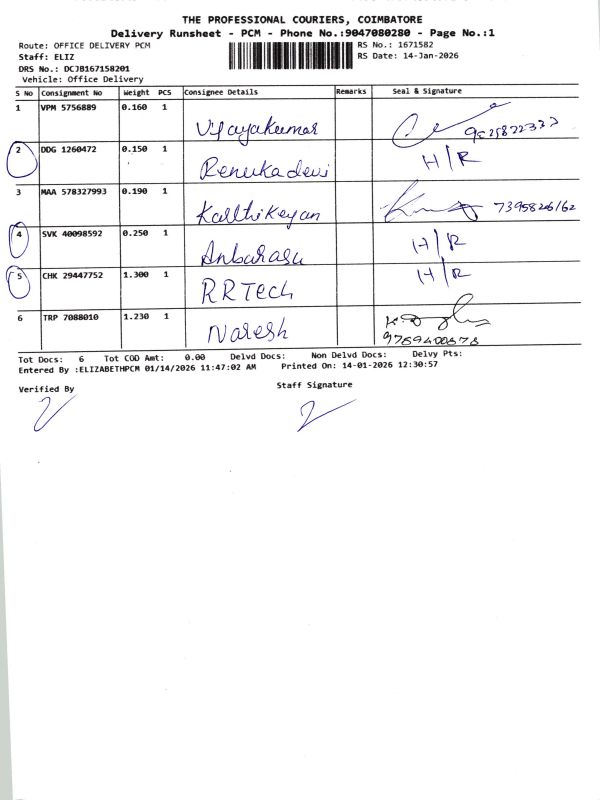 THE PROFESSIONAL COURIERS, COIMBATORE
Delivery Runsheet - PCM - Phone No.:9047080280 - Page No.:1
Route: OFFICE DELIVERY PCM RS No.: 1671582
Staff: ELIZ RS Date: 14-Jan-2026
DRS No.: DCJB167158201
Vehicle: Office Delivery
S No Consignment No Weight PCS Consignee Details Remarks Seal & Signature
1 VPM 5756889 0.160 1 Vijayakumar
2 DDG 1260472 0.150 1 Renuka devi H/R
3 MAA 578327993 0.190 1 Karthikeyan 7395826162
4 SVK 40098592 0.250 1 Anbarasu H/R
5 CHK 29447752 1.300 1 RR Tech H/R
6 TRP 7088010 1.230 1 Naresh
Tot Docs: 6 Tot COD Amt: 0.00 Delvd Docs: Non Delvd Docs: Delvy Pts:
Entered By :ELIZABETHPCM 01/14/2026 11:47:02 AM Printed On: 14-01-2026 12:30:57
Verified By Staff Signature